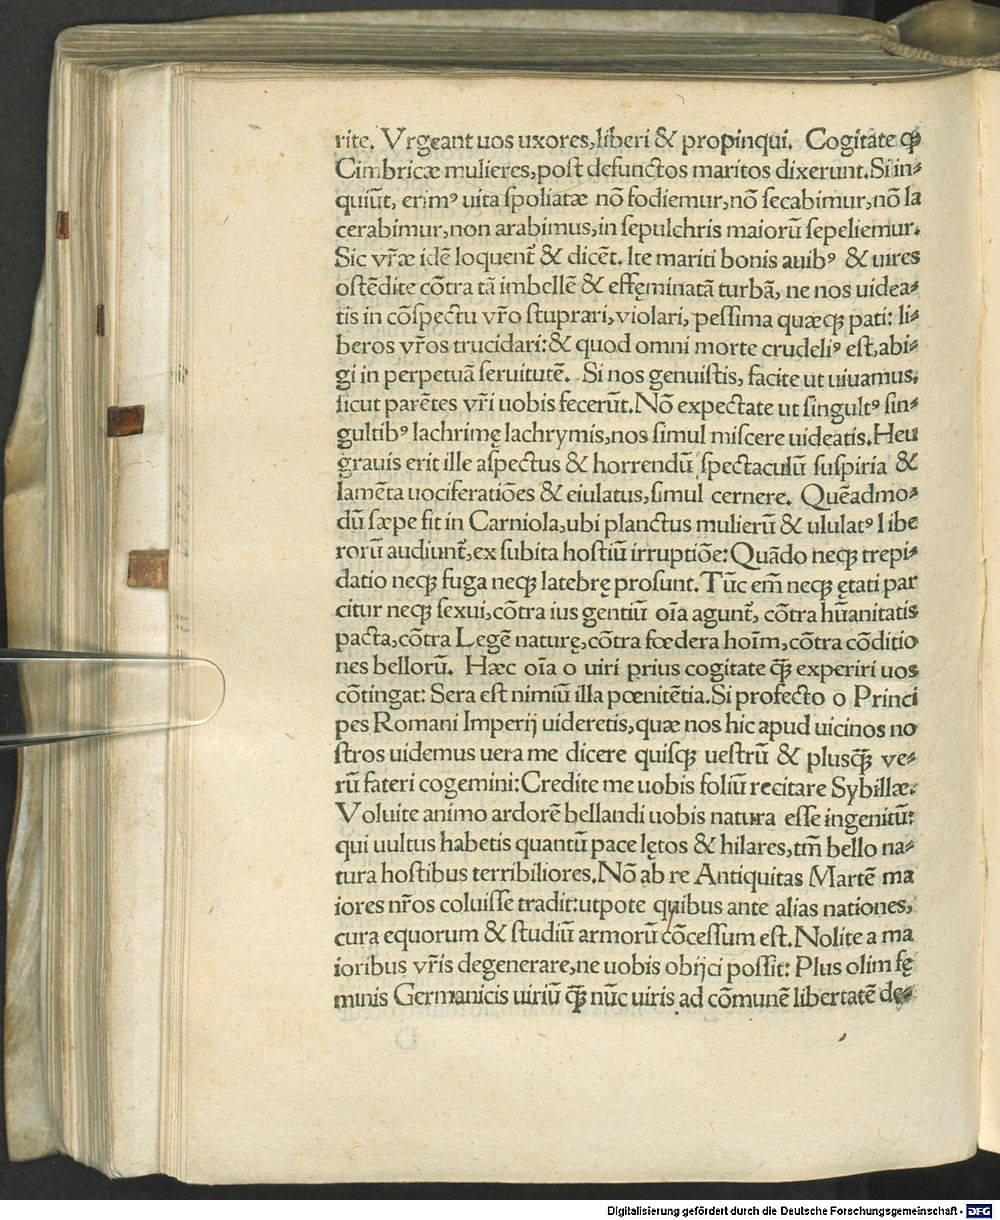 rite. Vrgeant uos uxores,liberi & propinqui. Cogitate ꝙ
Cimbricæ mulieres,poſt defunctos maritos dixerunt.Si in⸗
quiūt, erimꝰ uita ſpoliatæ nō fodiemur,nō ſecabimur,nō la
cerabimur,non arabimus,in ſepulchris maiorū ſepeliemur.
Sic vr̄æ idē loquent̄ & dicēt. Ite mariti bonis auibꝰ & uires
oſtēdite cōtra tā imbellē & effęminatā turbā, ne nos uidea⸗
tis in cōſpectu vr̄o ſtuprari,violari, peſſima quæcꝫ pati: li⸗
beros vr̄os trucidari:& quod omni morte crudeliꝰ eſt,abi⸗
gi in perpetuā ſeruitutē. Si nos genuiſtis, facite ut uiuamus,
ſicut parētes vr̄i uobis fecerūt.Nō expectate ut ſingultꝰ ſin⸗
gultibꝰ lachrimę lachrymis,nos ſimul miſcere uideatis.Heu
grauis erit ille aſpectus & horrendū ſpectaculū ſuſpiria &
lamēta uociferatiōes & eiulatus,ſimul cernere. Quēadmo⸗
dū ſæpe fit in Carniola,ubi planctus mulierū & ululatꝰ libe
rorū audiunt̄,ex ſubita hoſtiū irruptiōe:Quādo neqꝫ trepi⸗
datio neqꝫ fuga neqꝫ latebrę proſunt.Tūc em̄ neqꝫ ętati par
citur neqꝫ ſexui,cōtra ius gentiū oīa agunt̄, cōtra hūanitatis
pacta,cōtra Legē naturę,cōtra fœdera hoīm,cōtra cōditio
nes bellorū. Hæc oīa o uiri prius cogitate q̄ꝫ experiri uos
cōtingat: Sera eſt nimiū illa pœnitētia.Si profecto o Princi
pes Romani Imperij uideretis,quæ nos hic apud uicinos no
ſtros uidemus uera me dicere quiſqꝫ ueſtrū & pluſq̄ꝫ ve⸗
rū fateri cogemini:Credite me uobis foliū recitare Sybillæ.
Voluite animo ardorē bellandi uobis natura eſſe ingenitū:
qui uultus habetis quantū pace lętos & hilares,tm̄ bello na⸗
tura hoſtibus terribiliores.Nō ab re Antiquitas Martē ma
iores nr̄os coluiſſe tradit:utpote quibus ante alias nationes,
cura equorum & ſtudiū armorū cōceſſum eſt.Nolite a ma
ioribus vr̄is degenerare,ne uobis obijci poſſit: Plus olim fę
minis Germanicis uiriū q̄ꝫ nūc uiris ad cōmunē libertatē de⸗
Digitalisierung gefördert durch die Deutsche Forschungsgemeinschaft - DFG